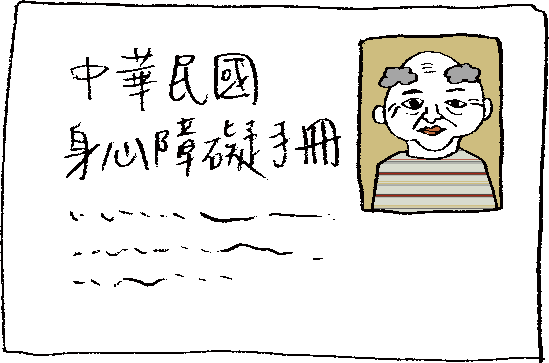 中華民國
身心障礙手冊